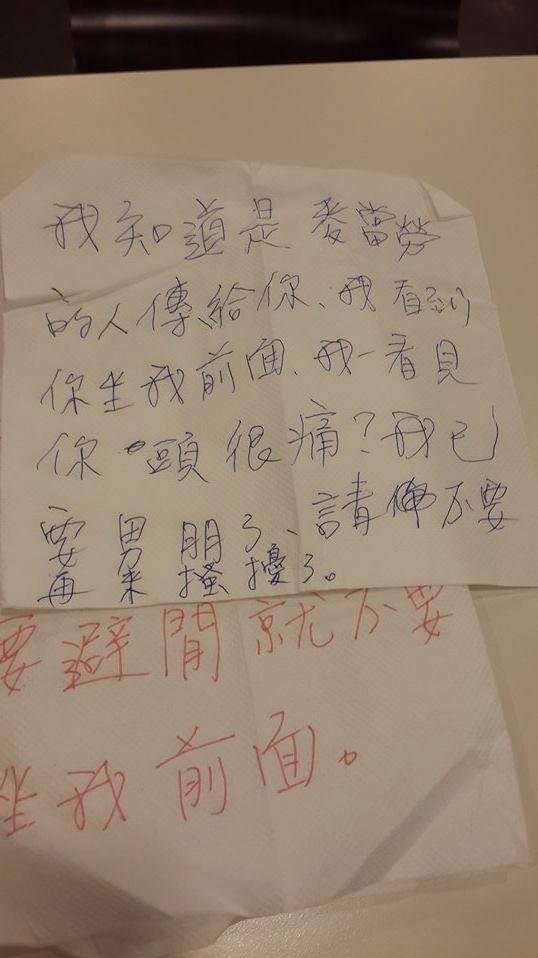 我知道是麥當勞
的人傳給你、我看到
你坐我前面、我一看見
你頭很痛?我已
要男朋了、請你不要
再來搔擾了。
要避開就不要
坐我前面。